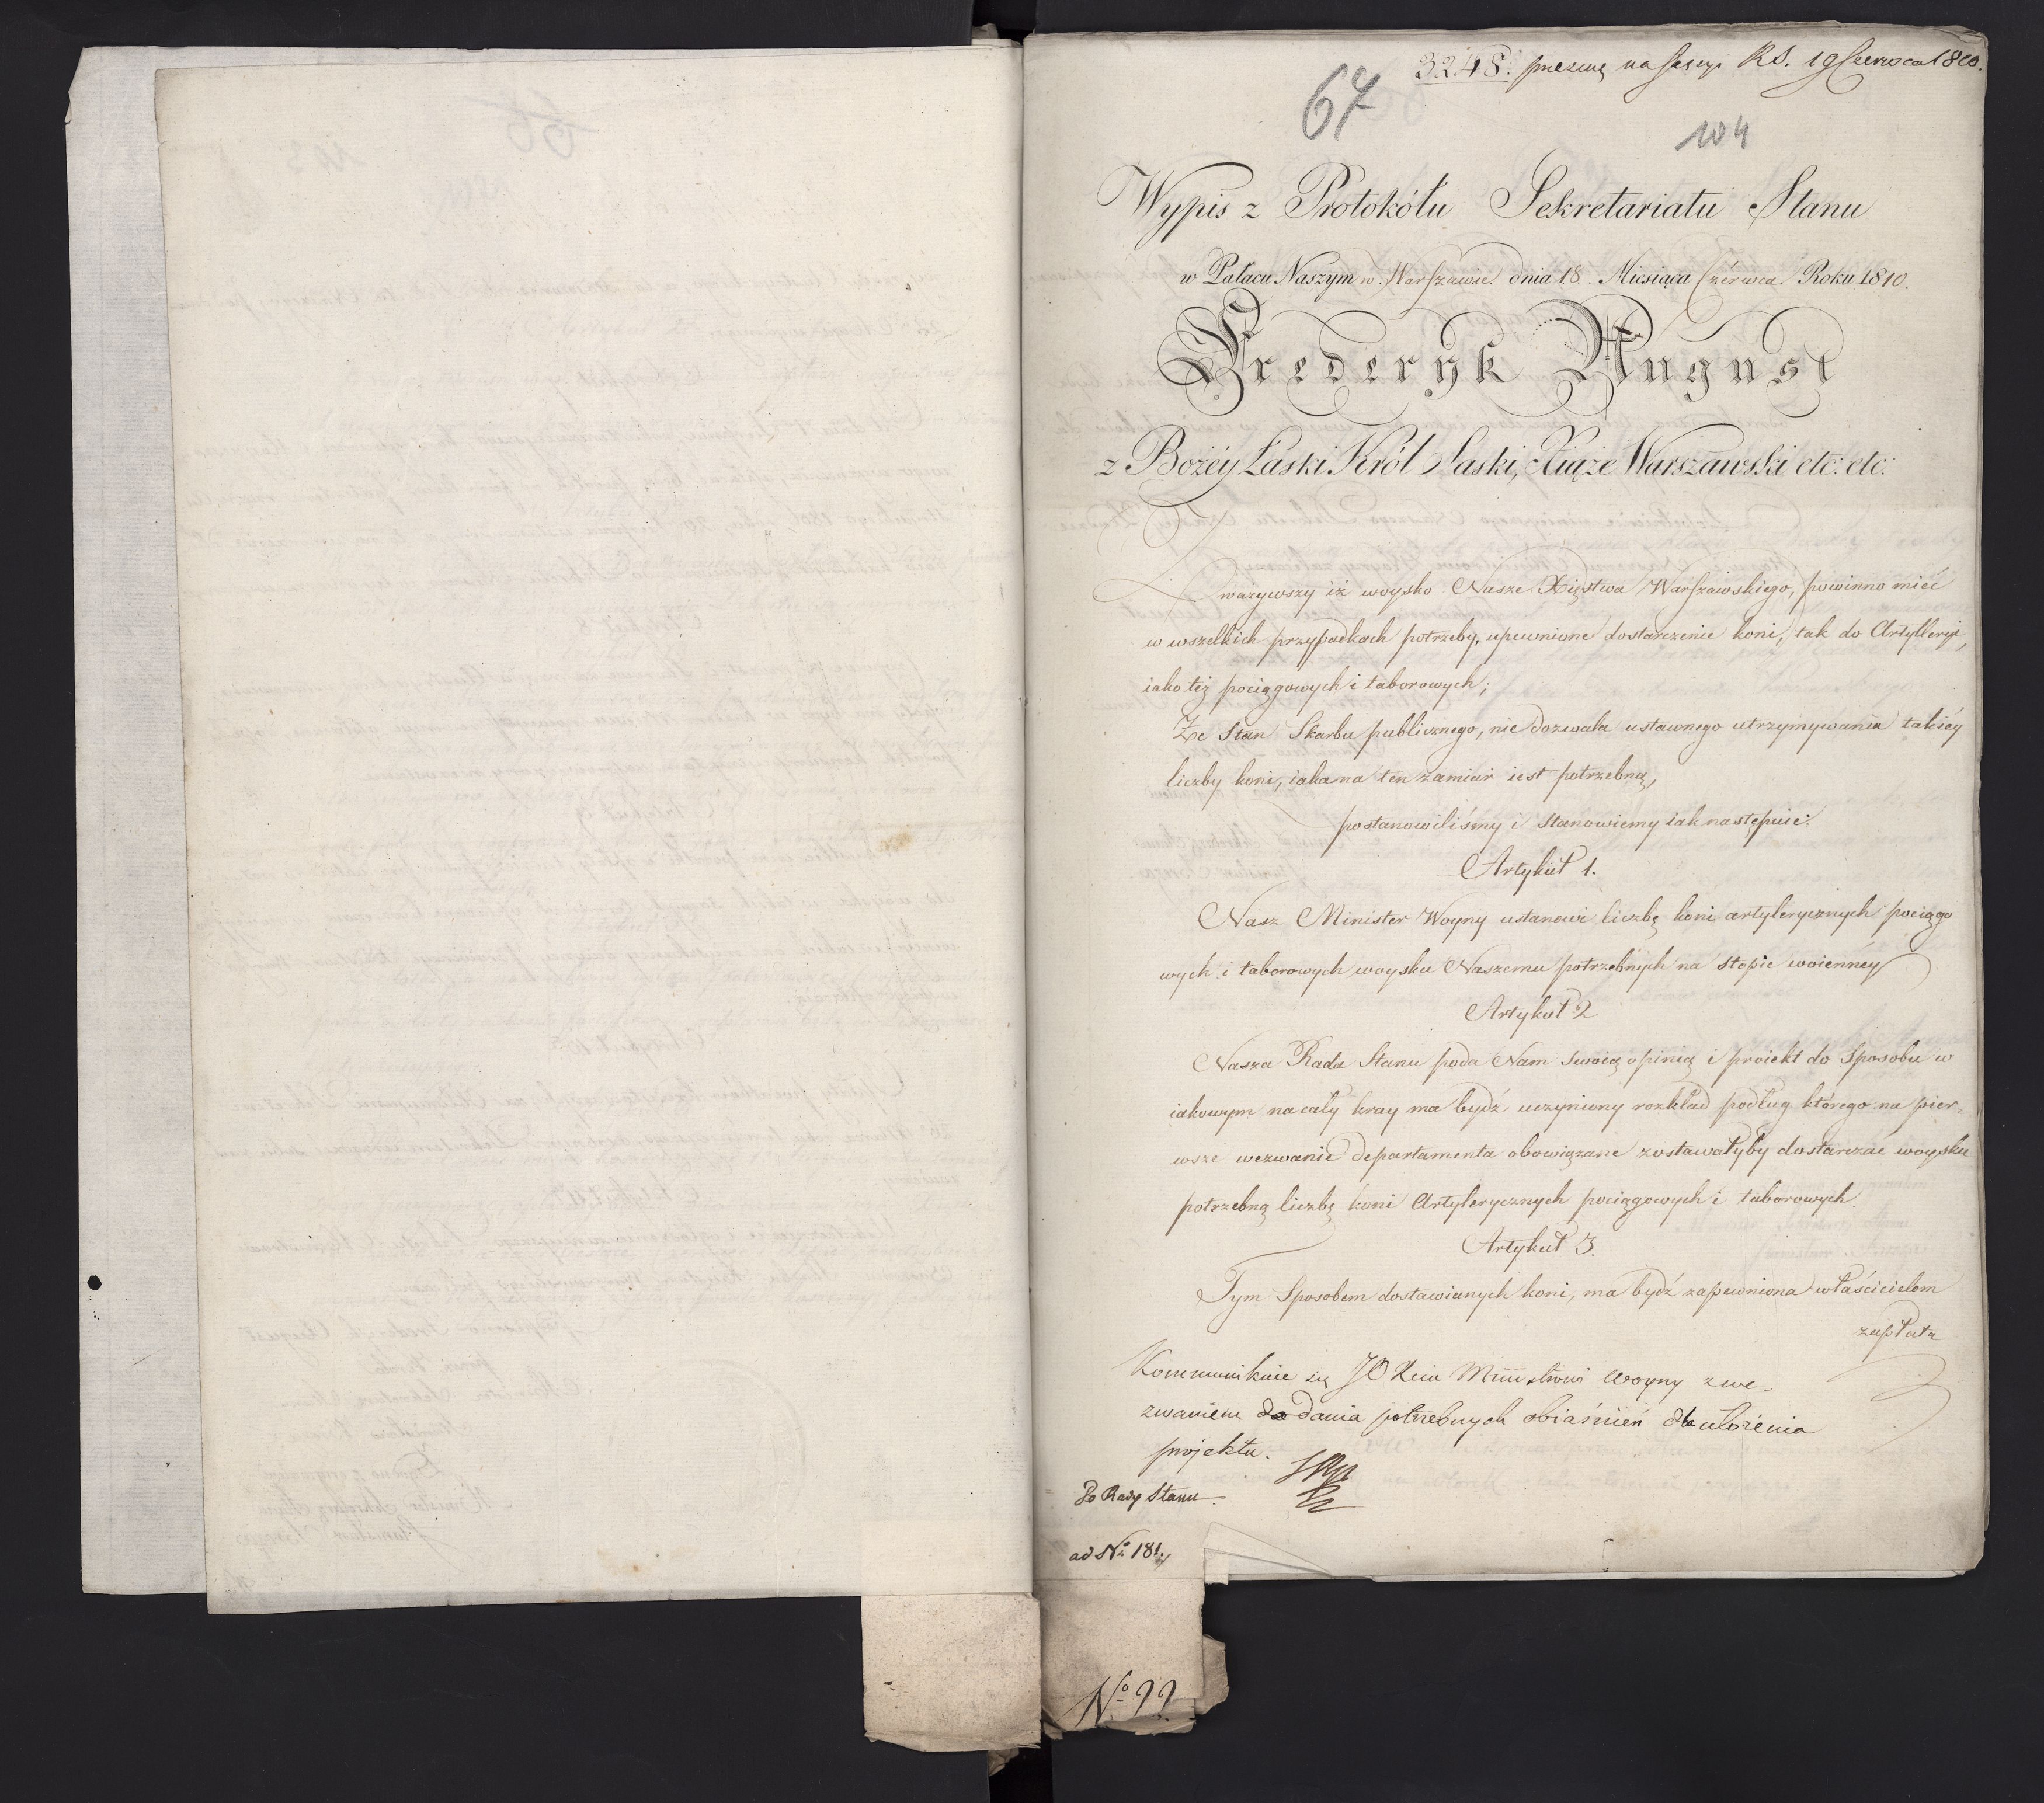 3248. prezent: na Sessyi RS. 19 Czerwca 1810.
67
104
Wypis z Protokółu Sekretariatu Stanu
w Pałacu Naszym w Warszawie dnia 18. Miesiąca Czérwca Roku 1810.
Frederyk August
z Bożéy Łaski Król Saski, Xiąże Warszawski etc: etc:
Zważywszy iż woysko Nasze Xięstwa Warszawskiego, powinno mieć
w wszelkich przypadkach potrzeby, upewnione dostarczenie koni, tak do Artylleryi,
iako też pociągowych i taborowych;
Że Stan Skarbu publicznego, nie dozwala ustawnego utrzymywania takiéy
liczby koni, iaka na ten zamiar iest potrzebną,
postanowiliśmy i stanowiemy iak następuie:
Artykuł 1.
Nasz Minister Woyny ustanowi liczbę koni artylerycznych pociągo
wych i taborowych woysku Naszemu potrzebnych na stopie woiennéy
Artykuł 2
Nasza Rada Stanu poda Nam swoią opinią i proiekt do sposobu w
iakowym na cały kray ma bydź uczyniony rozkład podług którego na pier-
wsze wezwanie departamenta obowiązane zostawałyby dostarczać woysku
potrzebną liczbę koni Artylerycznych pociągowych i taborowych.
Artykuł 3.
Tym sposobem dostawianych koni, ma bydź zapewniona właścicielom
zapłata
Kommunikuie się JO Xciu Ministrowi Woyny z we-
zwaniem do dania potrzebnych obiaśnień dla ułożenia
projektu.
Do Rady Stanu.
ad No. 181.
No. 99.